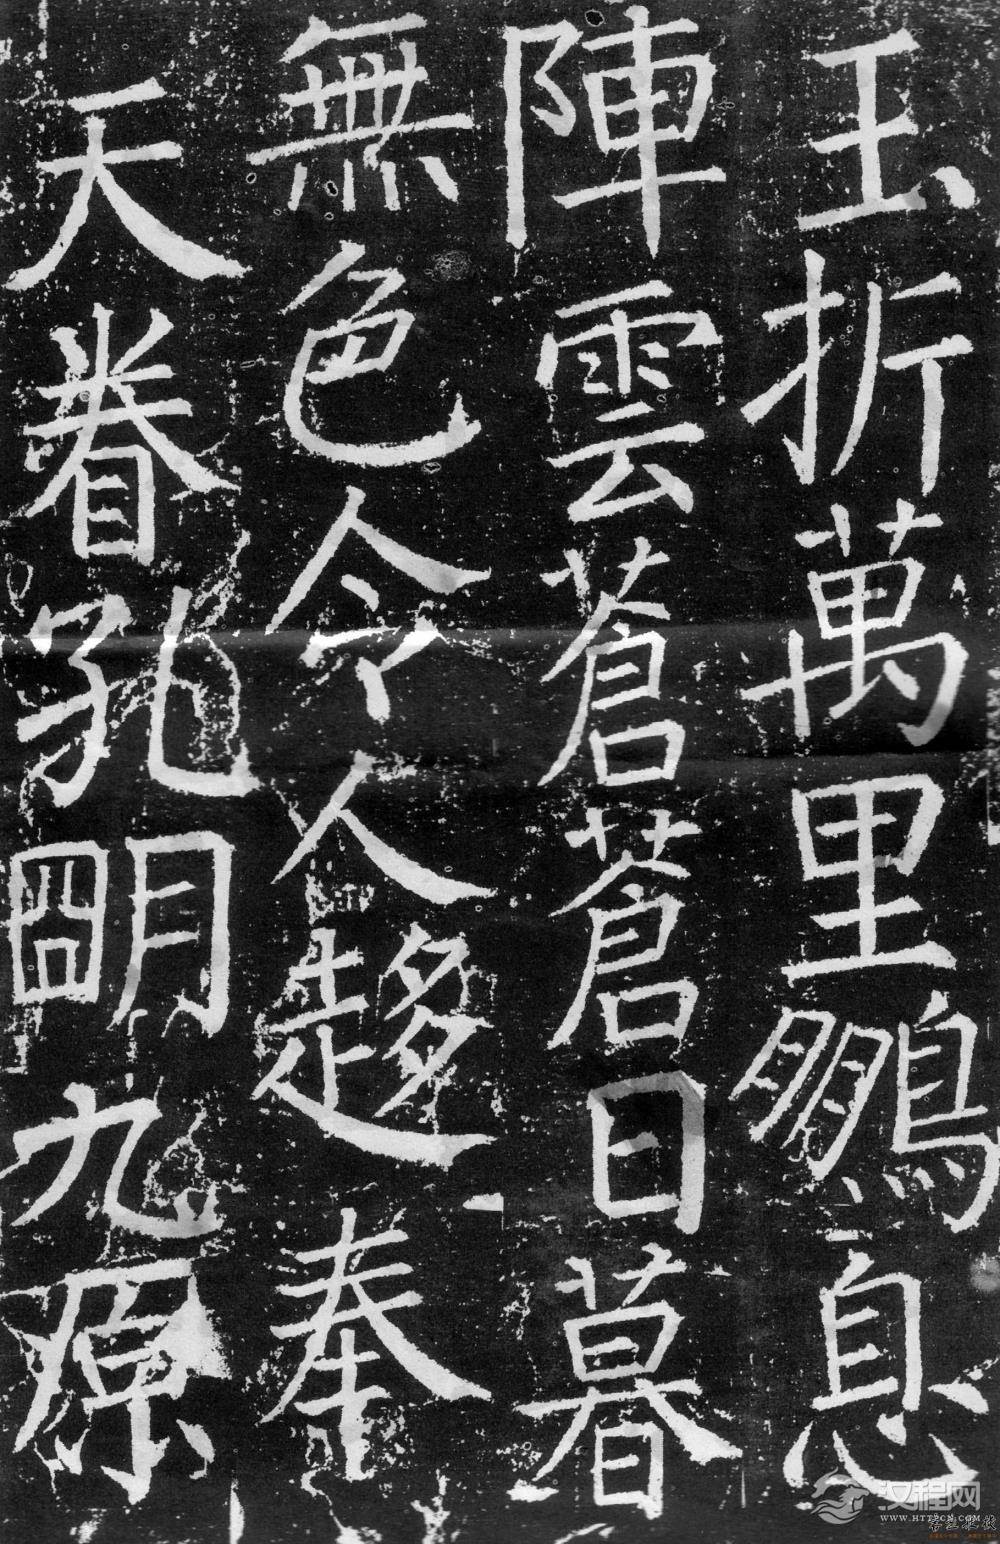 玉折萬里鵬息
陣雲蒼蒼日暮
無色令人趍奉
天眷孔明九原
汉程网
WWW.HTTPCN.COM